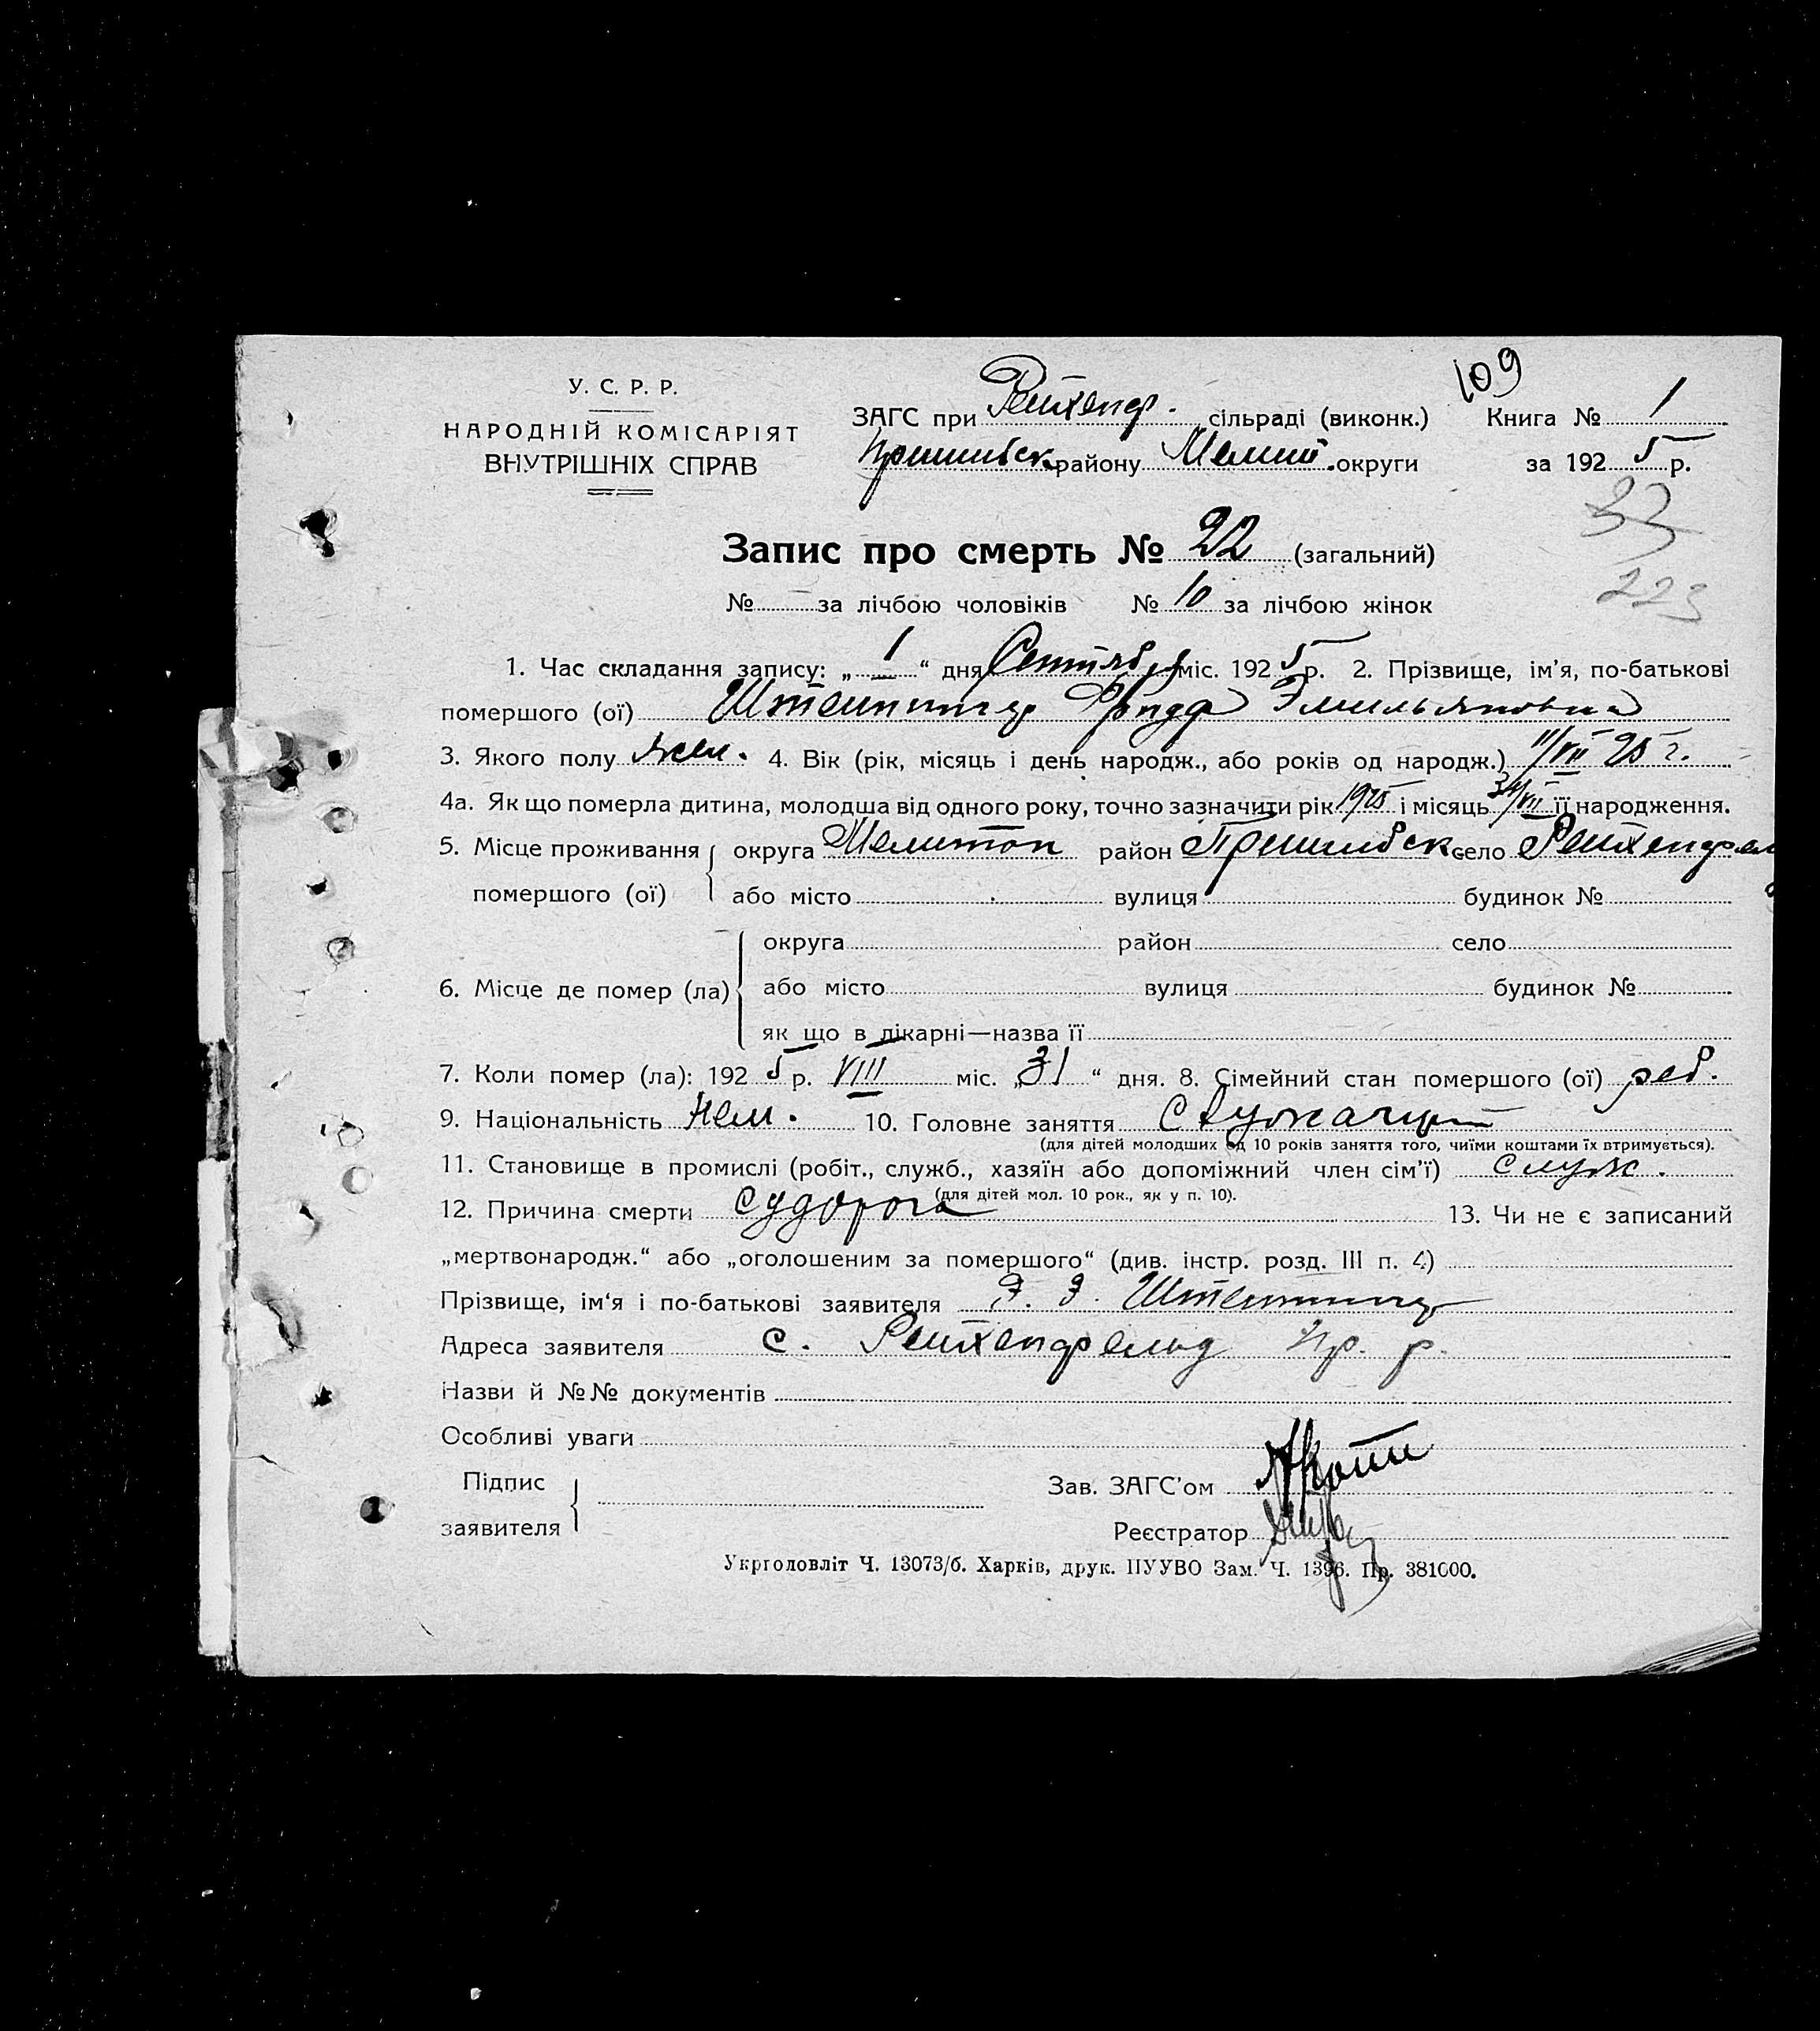 109
У. С. Р. Р.
НАРОДНІЙ КОМІСАРІЯТ
ВНУТРІШНІХ СПРАВ
ЗАГС при Рейхенф. сільраді (виконк.) Книга № 1
Пришибск. району Мелит. округи за 1925 р.
33
223
Запис про смерть № 22 (загальний)
№ за лічбою чоловіків № 10 за лічбою жінок
1. Час складання запису: „1“ дня Сентября міс. 1925 р. 2. Прізвище, ім'я, по-батькові
помершого (ої) Эмильяновна
3. Якого полу жен. 4. Вік (рік, місяць і день народж., або років од народж.) 11/VII 25 г.
4а. Як що померла дитина, молодша від одного року, точно зазначити рік 1925 і місяць VII її народження.
5. Місце проживання округа Мелитоп район Пришибск. село Рейхенфел
помершого (ої) або місто вулиця будинок №
округа район село
6. Місце де помер (ла) або місто вулиця будинок №
як що в лікарні—назва її
7. Коли помер (ла): 1925 р. VIII міс. „31“ дня. 8. Сімейний стан помершого (ої) реб.
9. Національність нем. 10. Головне заняття Служащий
(для дітей молодших од 10 років заняття того, чиїми коштами їх втримується).
11. Становище в промислі (робіт., служб., хазяїн або допоміжний член сім'ї) служ.
(для дітей мол. 10 рок., як у п. 10).
12. Причина смерти судорога 13. Чи не є записаний
„мертвонародж.“ або „оголошеним за помершого“ (див. інстр. розд. III п. 4)
Прізвище, ім'я і по-батькові заявителя Э. Э.
Адреса заявителя с. Рейхенфельд Пр. р.
Назви й №№ документів
Особливі уваги
Підпис
заявителя
Зав. ЗАГС'ом
Реєстратор
Укрголовліт Ч. 13073/б. Харків, друк. ПУУВО Зам. Ч. 1396. Пр. 381000.